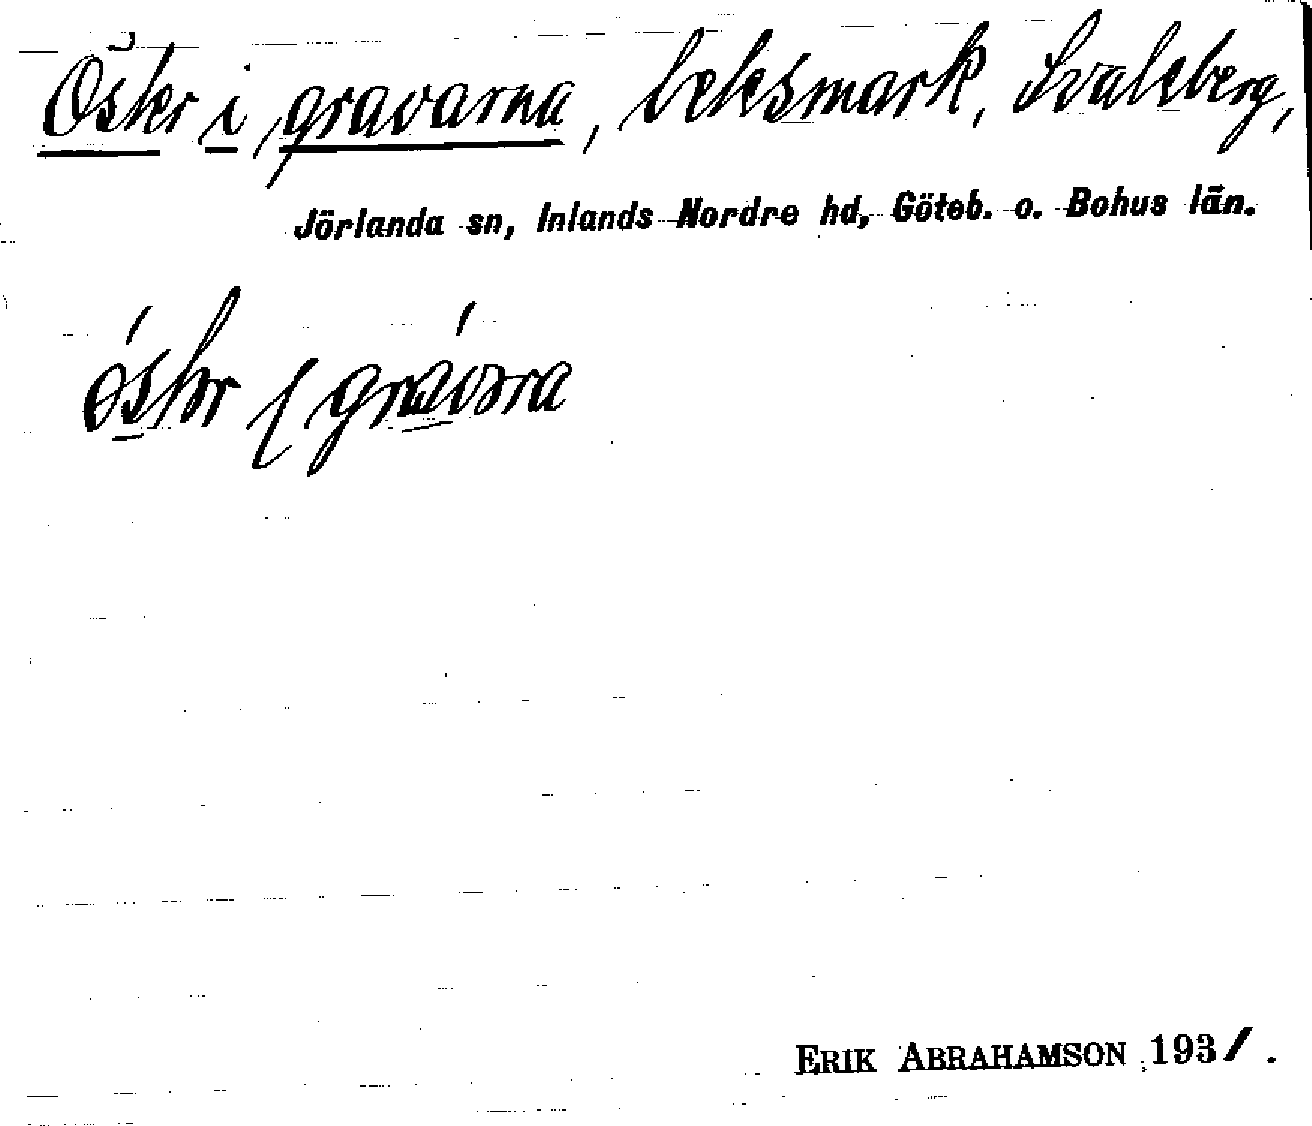 Öster i gravarna, betesmark, Svaleberg,
Jörlanda sn, Inlands Nordre hd, Göteb. o. Bohus län.
ERIK ABRAHAMSON 1931.